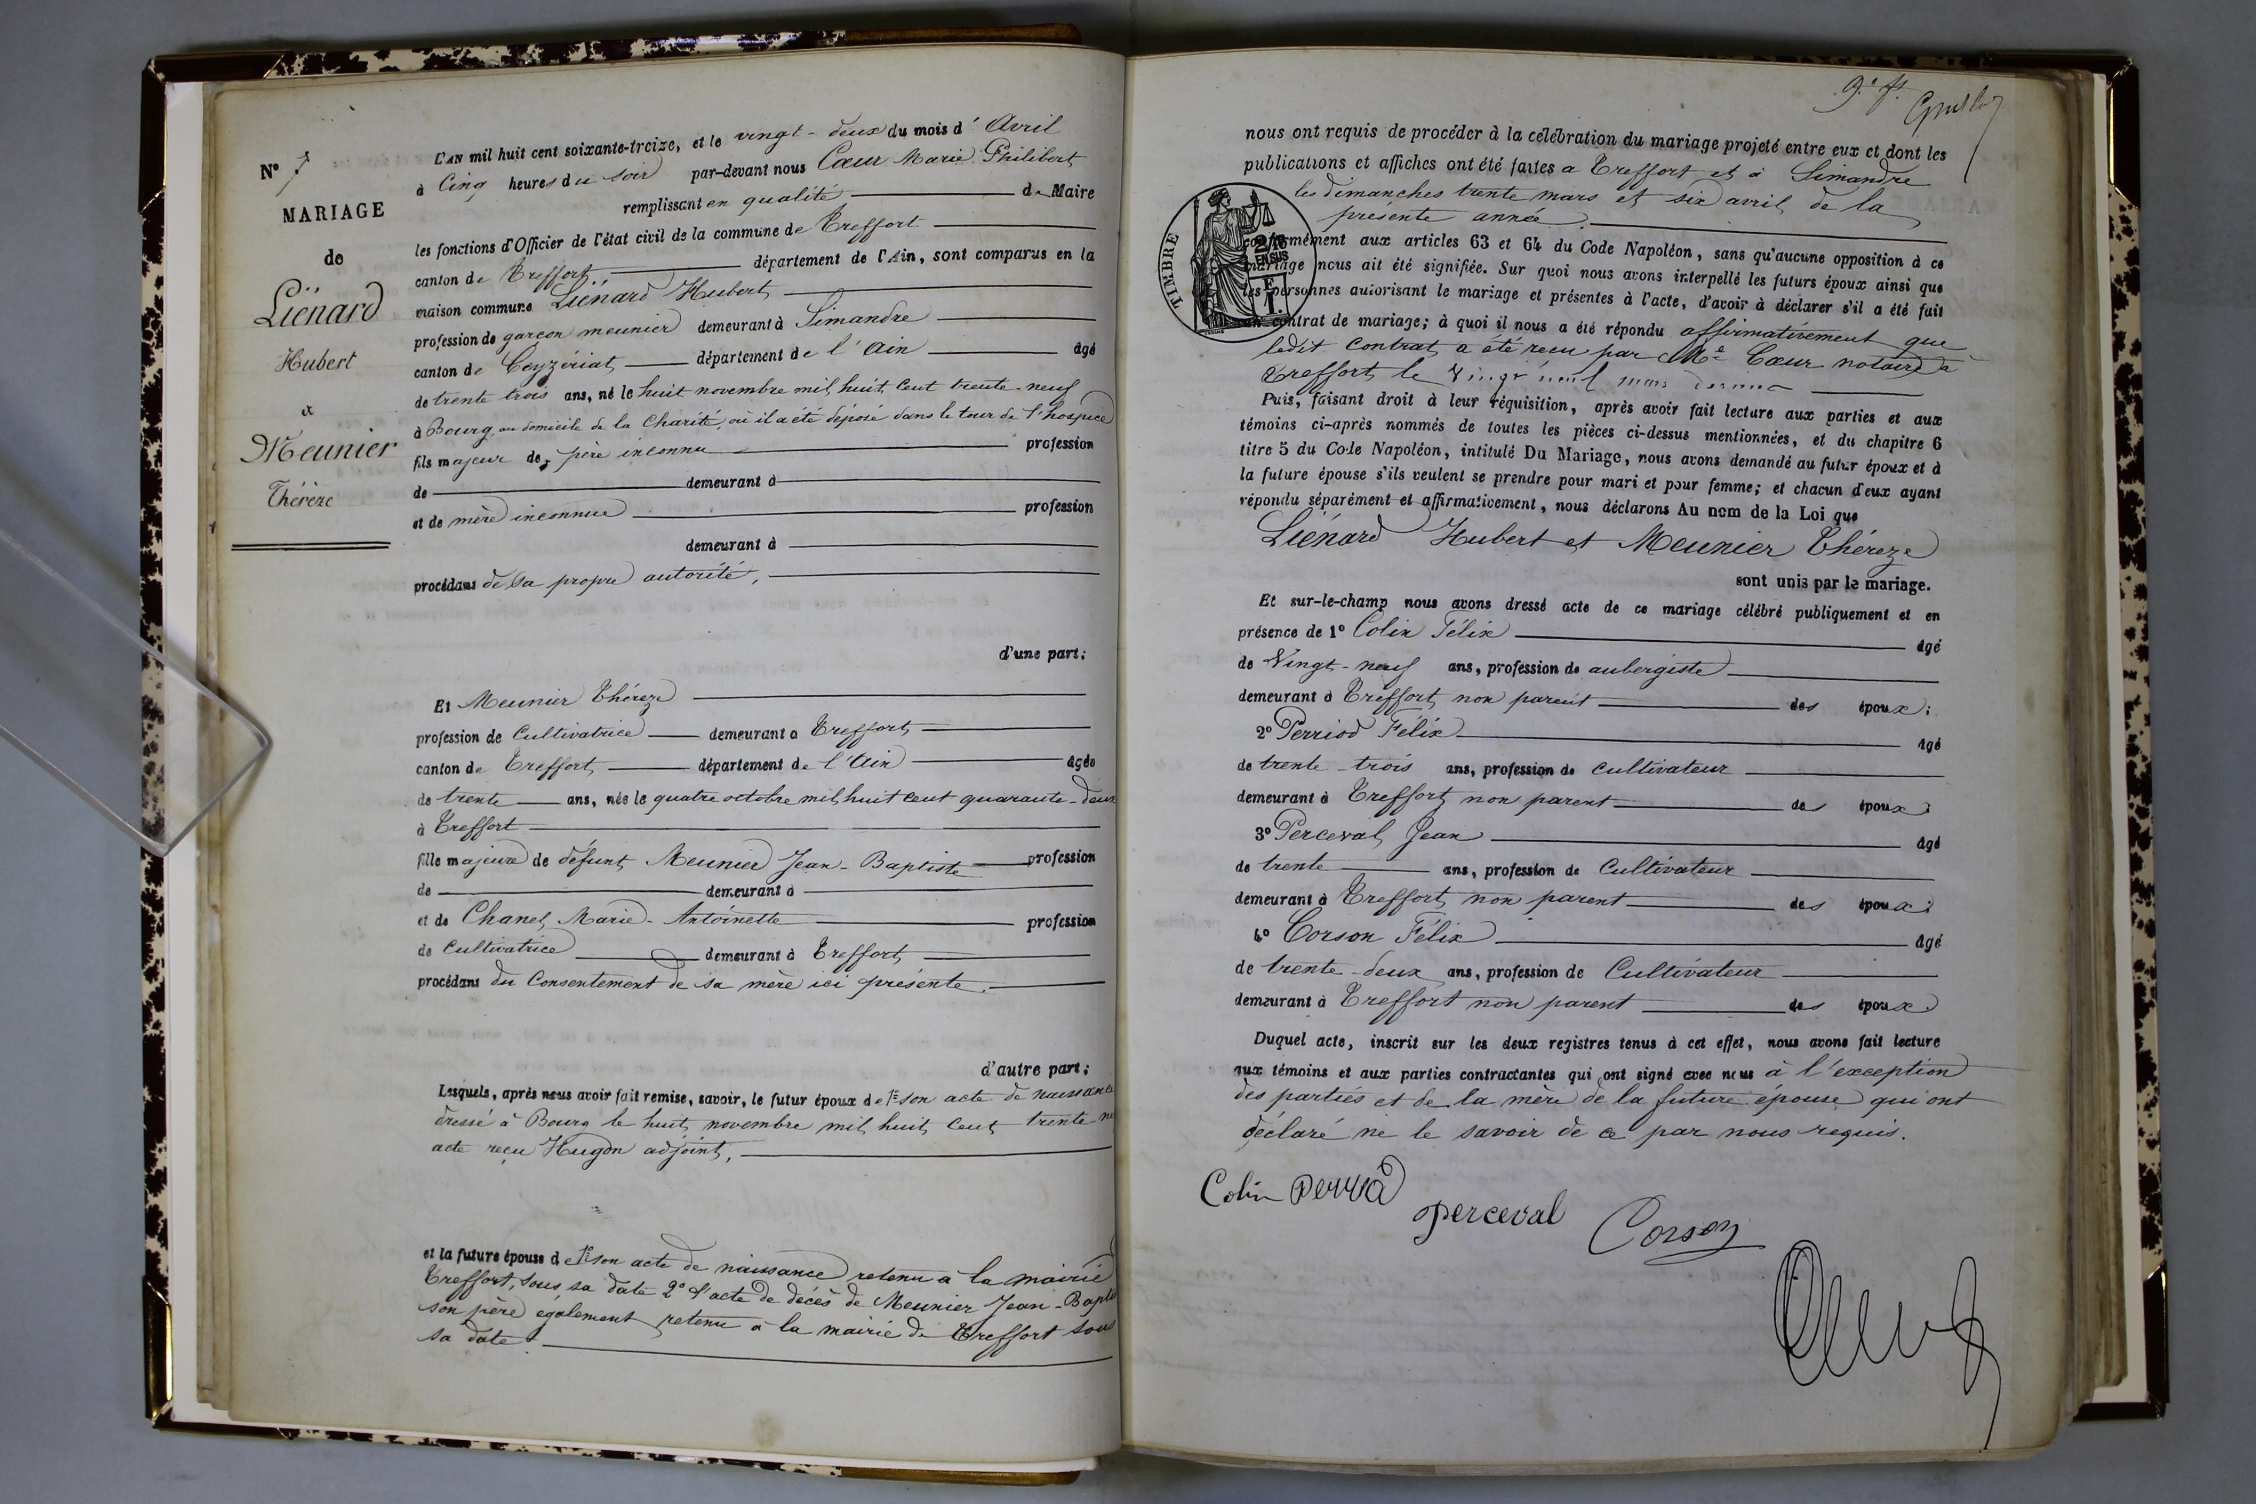 N° 7
MARIAGE
de
Liénard
Hubert
et
Meunier
Thérèze
L'AN mil huit cent soixante-treize, et le vingt-deux du mois d'Avril
à Cinq heures du soir par-devant nous Cœur Marie Philibert
remplissant en qualité de Maire
les fonctions d'Officier de l'état civil de la commune de Treffort
canton de Treffort, département de l'Ain, sont comparus en la
maison commune Liénard Hubert
profession de garçon meunier demeurant à Simandre
canton de Ceyzériat département de l'Ain âgé
de trente trois ans, né le huit novembre mil huit cent trente-neuf
à Bourg, au domicile de la Charité, où il a été déposé dans le tour de l'hospice
fils majeur de père inconnu profession
de demeurant à
et de mère inconnue profession
demeurant à
procédant de sa propre autorité,
d'une part;
Et Meunier Thérèze
profession de Cultivatrice demeurant à Treffort
canton de Treffort département de l'Ain âgée
de trente ans, née le quatre octobre mil huit cent quarante-deux
à Treffort
fille majeure de défunt Meunier Jean-Baptiste profession
de demeurant à
et de Chanel Marie-Antoinette profession
de Cultivatrice demeurant à Treffort
procédant du Consentement de sa mère ici présente.
d'autre part;
Lesquels, après nous avoir fait remise, savoir, le futur époux de 1° son acte de naissance
dressé à Bourg le huit novembre mil huit cent trente
acte reçu Hugon adjoint,
et la future épouse de 1° son acte de naissance retenu à la mairie
Treffort, sous sa date 2° l'acte de décès de Meunier Jean-
son père également retenu à la mairie de Treffort sous
sa date.
9e ft.
nous ont requis de procéder à la célébration du mariage projeté entre eux et dont les
publications et affiches ont été faites à Treffort et à Simandre
les dimanches trente mars et six avril de la
présente année.
TIMBRE
2/10
EN SUS
1 F.
conformément aux articles 63 et 64 du Code Napoléon, sans qu'aucune opposition à ce
mariage nous ait été signifiée. Sur quoi nous avons interpellé les futurs époux ainsi que
les personnes autorisant le mariage et présentes à l'acte, d'avoir à déclarer s'il a été fait
un contrat de mariage; à quoi il nous a été répondu affirmativement que
ledit Contrat a été reçu par Me Cœur notaire à
Treffort le vingt neuf mars dernier
Puis, faisant droit à leur réquisition, après avoir fait lecture aux parties et aux
témoins ci-après nommés de toutes les pièces ci-dessus mentionnées, et du chapitre 6
titre 5 du Code Napoléon, intitulé Du Mariage, nous avons demandé au futur époux et à
la future épouse s'ils veulent se prendre pour mari et pour femme; et chacun d'eux ayant
répondu séparément et affirmativement, nous déclarons Au nom de la Loi que
Liénard Hubert et Meunier Thérèze
sont unis par le mariage.
Et sur-le-champ nous avons dressé acte de ce mariage célébré publiquement et en
présence de 1° Colin Félix âgé
de Vingt-neuf ans, profession de aubergiste
demeurant à Treffort non parent des époux;
2° Perriod Félix âgé
de trente-trois ans, profession de Cultivateur
demeurant à Treffort non parent des époux;
3° Perceval Jean âgé
de trente ans, profession de Cultivateur
demeurant à Treffort non parent des époux;
4° Corson Félix âgé
de trente-deux ans, profession de Cultivateur
demeurant à Treffort non parent des époux.
Duquel acte, inscrit sur les deux registres tenus à cet effet, nous avons fait lecture
aux témoins et aux parties contractantes qui ont signé avec nous à l'exception
des parties et de la mère de la future épouse qui ont
déclaré ne le savoir de ce par nous requis.
Colin
perceval Corson